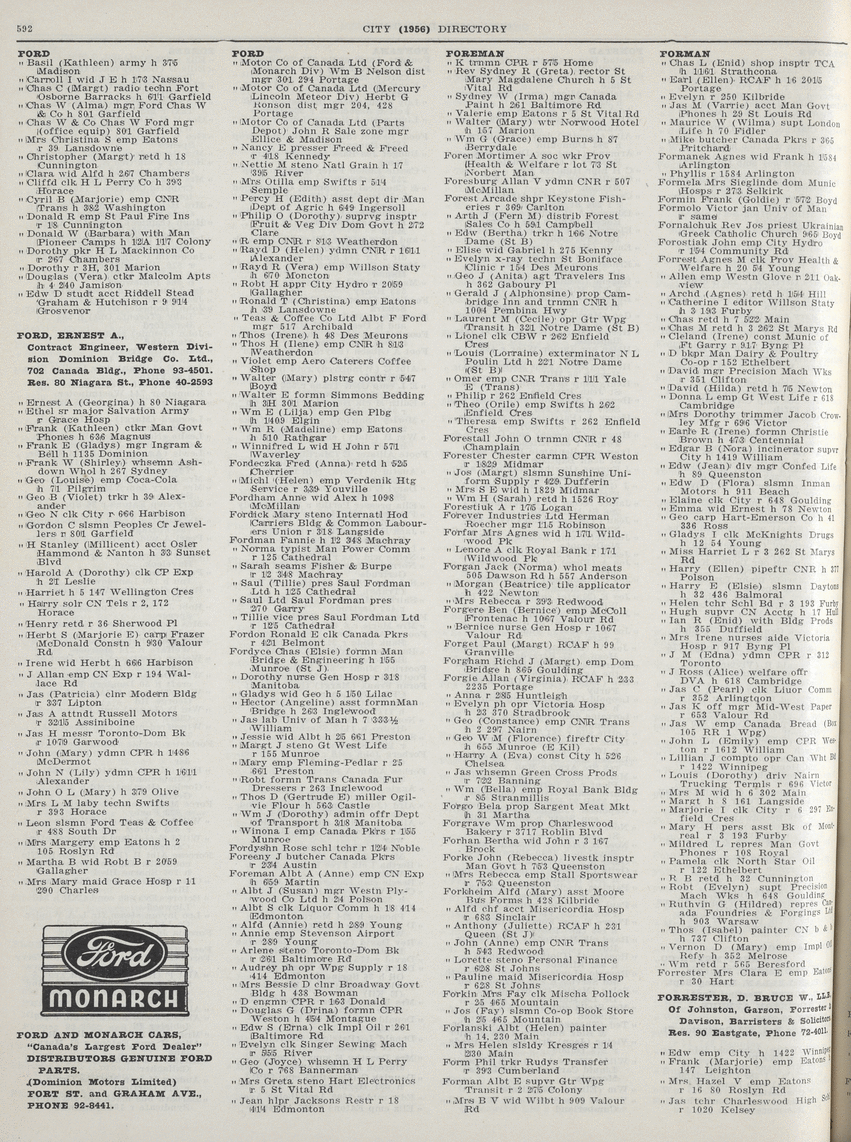 592
CITY (1956) DIRECTORY
FORD
" Basil (Kathleen) army h 376
Madison
" Carroll I wid J E h 173 Nassau
" Chas C (Margt) radio techn Fort
Osborne Barracks h 611 Garfield
" Chas W (Alma) mgr Ford Chas W
& Co h 801 Garfield
" Chas W & Co Chas W Ford mgr
(office equip) 801 Garfield
" Mrs Christina S emp Eatons
r 39 Lansdowne
" Christopher (Margt) retd h 18
Cunnington
" Clara wid Alfd h 267 Chambers
" Cliffd clk H L Perry Co h 393
Horace
" Cyril B (Marjorie) emp CNR
Trans h 382 Washington
" Donald R emp St Paul Fire Ins
r 18 Cunnington
" Donald W (Barbara) with Man
Pioneer Camps h 12A 1117 Colony
" Dorothy pkr H L Mackinnon Co
r 267 Chambers
" Dorothy r 3H, 301 Marion
" Douglas (Vera) ctkr Malcolm Apts
h 4 240 Jamison
" Edw D studt acct Riddell Stead
Graham & Hutchison r 9 914
Grosvenor
FORD, ERNEST A.,
Contract Engineer, Western Divi-
sion Dominion Bridge Co. Ltd.,
702 Canada Bldg., Phone 93-4501.
Res. 80 Niagara St., Phone 40-2593
" Ernest A (Georgina) h 80 Niagara
" Ethel sr major Salvation Army
r Grace Hosp
" Frank (Kathleen) ctkr Man Govt
Phones h 636 Magnus
" Frank E (Gladys) mgr Ingram &
Bell h 1135 Dominion
" Frank W (Shirley) whsemn Ash-
down Whol h 267 Sydney
" Geo (Louise) emp Coca-Cola
h 71 Pilgrim
" Geo B (Violet) trkr h 39 Alex-
ander
" Geo N clk City r 666 Harbison
" Gordon C slsmn Peoples Cr Jewel-
lers r 801 Garfield
" H Stanley (Millicent) acct Osler
Hammond & Nanton h 33 Sunset
Blvd
" Harold A (Dorothy) clk CP Exp
h 21 Leslie
" Harriet h 5 147 Wellington Cres
" Harry solr CN Tels r 2, 172
Horace
" Henry retd r 36 Sherwood Pl
" Herbt S (Marjorie E) carp Frazer
McDonald Constn h 930 Valour
Rd
" Irene wid Herbt h 666 Harbison
" J Allan emp CN Exp r 194 Wal-
lace Rd
" Jas (Patricia) clnr Modern Bldg
r 337 Lipton
" Jas A attndt Russell Motors
r 3215 Assiniboine
" Jas H messr Toronto-Dom Bk
r 1079 Garwood
" John (Mary) ydmn CPR h 1486
McDermot
" John N (Lily) ydmn CPR h 1611
Alexander
" John O L (Mary) h 379 Olive
" Mrs L M laby techn Swifts
r 393 Horace
" Leon slsmn Ford Teas & Coffee
r 488 South Dr
" Mrs Margery emp Eatons h 2
105 Roslyn Rd
" Martha B wid Robt B r 2059
Gallagher
" Mrs Mary maid Grace Hosp r 11
290 Charles
Ford
MONARCH
FORD AND MONARCH CARS,
"Canada's Largest Ford Dealer"
DISTRIBUTORS GENUINE FORD
PARTS.
(Dominion Motors Limited)
FORT ST. and GRAHAM AVE.,
PHONE 92-8441.
FORD
" Motor Co of Canada Ltd (Ford &
Monarch Div) Wm B Nelson dist
mgr 301 294 Portage
" Motor Co of Canada Ltd (Mercury
Lincoln Meteor Div) Herbt G
Ronson dist mgr 204, 428
Portage
" Motor Co of Canada Ltd (Parts
Depot) John R Sale zone mgr
Ellice & Madison
" Nancy E presser Freed & Freed
r 418 Kennedy
" Nettie M steno Natl Grain h 17
395 River
" Mrs Otilla emp Swifts r 514
Semple
" Percy H (Edith) asst dept dir Man
Dept of Agric h 649 Ingersoll
" Philip O (Dorothy) suprvg insptr
Fruit & Veg Div Dom Govt h 272
Clare
" R emp CNR r 813 Weatherdon
" Rayd D (Helen) ydmn CNR r 161
Alexander
" Rayd R (Vera) emp Willson Staty
h 670 Moncton
" Robt H appr City Hydro r 2059
Gallagher
" Ronald T (Christina) emp Eatons
h 39 Lansdowne
" Teas & Coffee Co Ltd Albt F Ford
mgr 517 Archibald
" Thos (Irene) h 48 Des Meurons
" Thos H (Ilene) emp CNR h 813
Weatherdon
" Violet emp Aero Caterers Coffee
Shop
" Walter (Mary) plstrg contr r 547
Boyd
" Walter E formn Simmons Bedding
h 3H 301 Marion
" Wm E (Lilja) emp Gen Plbg
h 1409 Elgin
" Wm R (Madeline) emp Eatons
h 510 Rathgar
" Winnifred L wid H John r 571
Waverley
Fordeczka Fred (Anna) retd h 525
Cherrier
" Michl (Helen) emp Verdenik Htg
Service r 339 Youville
Fordham Anne wid Alex h 1098
McMillan
Fordick Mary steno Internatl Hod
Carriers Bldg & Common Labour-
ers Union r 318 Langside
Fordman Fannie h 12 348 Machray
" Norma typist Man Power Comm
r 125 Cathedral
" Sarah seams Fisher & Burpe
r 12 348 Machray
" Saul (Tillie) pres Saul Fordman
Ltd h 125 Cathedral
" Saul Ltd Saul Fordman pres
270 Garry
" Tillie vice pres Saul Fordman Ltd
r 125 Cathedral
Fordon Ronald E clk Canada Pkrs
r 421 Belmont
Fordyce Chas (Elsie) formn Man
Bridge & Engineering h 155
Munroe (St J)
" Dorothy nurse Gen Hosp r 318
Manitoba
" Gladys wid Geo h 5 150 Lilac
" Hector (Angeline) asst formnMan
Bridge h 263 Inglewood
" Jas lab Univ of Man h 7 333½
William
" Jessie wid Albt h 25 661 Preston
" Margt J steno Gt West Life
r 155 Munroe
" Mary emp Fleming-Pedlar r 25
661 Preston
" Robt formn Trans Canada Fur
Dressers r 263 Inglewood
" Thos D (Gertrude E) miller Ogil-
vie Flour h 563 Castle
" Wm J (Dorothy) admin offr Dept
of Transport h 318 Manitoba
" Winona I emp Canada Pkrs r 155
Munroe
Fordyshn Rose schl tchr r 124 Noble
Foreeny J butcher Canada Pkrs
r 234 Austin
Foreman Albt A (Anne) emp CN Exp
h 659 Martin
" Albt J (Susan) mgr Westn Ply-
wood Co Ltd h 24 Polson
" Albt S clk Liquor Comm h 18 414
Edmonton
" Alfd (Annie) retd h 289 Young
" Annie emp Stevenson Airport
r 289 Young
" Arlene steno Toronto-Dom Bk
r 261 Baltimore Rd
" Audrey ph opr Wpg Supply r 18
414 Edmonton
" Mrs Bessie D clnr Broadway Govt
Bldg h 438 Bowman
" D engmn CPR r 163 Donald
" Douglas G (Drina) formn CPR
Weston h 454 Montague
" Edw S (Erna) clk Impl Oil r 261
Baltimore Rd
" Evelyn clk Singer Sewing Mach
r 555 River
" Geo (Joyce) whsemn H L Perry
Co r 768 Bannerman
" Mrs Greta steno Hart Electronics
r 5 St Vital Rd
" Jean hlpr Jacksons Restr r 18
414 Edmonton
FOREMAN
" K trnmn CPR r 575 Home
" Rev Sydney R (Greta) rector St
Mary Magdalene Church h 5 St
Vital Rd
" Sydney W (Irma) mgr Canada
Paint h 261 Baltimore Rd
" Valerie emp Eatons r 5 St Vital Rd
" Walter (Mary) wtr Norwood Hotel
h 157 Marion
" Wm G (Grace) emp Burns h 87
Berrydale
Foren Mortimer A soc wkr Prov
Health & Welfare r lot 73 St
Norbert Man
Foresburg Allan V ydmn CNR r 507
McMillan
Forest Arcade shpr Keystone Fish-
eries r 369 Carlton
" Arth J (Fern M) distrib Forest
Sales Co h 591 Campbell
" Edw (Bertha) trkr h 166 Notre
Dame (St B)
" Elise wid Gabriel h 275 Kenny
" Evelyn x-ray techn St Boniface
Clinic r 154 Des Meurons
" Geo J (Anita) agt Travelers Ins
h 362 Gaboury Pl
" Gerald J (Alphonsine) prop Cam-
bridge Inn and trnmn CNR h
1004 Pembina Hwy
" Laurent M (Cecile) opr Gtr Wpg
Transit h 321 Notre Dame (St B)
" Lionel clk CBW r 262 Enfield
Cres
" Louis (Lorraine) exterminator N L
Poulin Ltd h 221 Notre Dame
(St B)
" Omer emp CNR Trans r 111 Yale
E (Trans)
" Philip r 262 Enfield Cres
" Theo (Orile) emp Swifts h 262
Enfield Cres
" Theresa emp Swifts r 262 Enfield
Cres
Forestall John O trnmn CNR r 48
Champlain
Forester Chester carmn CPR Weston
r 1829 Midmar
" Jos (Margt) slsmn Sunshine Uni-
form Supply r 429 Dufferin
" Mrs S E wid h 1829 Midmar
" Wm H (Sarah) retd h 1526 Roy
Forestiuk A r 175 Logan
Forever Industries Ltd Herman
Roecher mgr 115 Robinson
Forfar Mrs Agnes wid h 171 Wild-
wood Pk
" Lenore A clk Royal Bank r 171
Wildwood Pk
Forgan Jack (Norma) whol meats
505 Dawson Rd h 557 Anderson
" Morgan (Beatrice) tile applicator
h 422 Newton
" Mrs Rebecca r 393 Redwood
Forgere Ben (Bernice) emp McColl
Frontenac h 1067 Valour Rd
" Bernice nurse Gen Hosp r 1067
Valour Rd
Forget Paul (Margt) RCAF h 99
Granville
Forgham Richd J (Margt) emp Dom
Bridge h 865 Goulding
Forgie Allan (Virginia) RCAF h 233
2235 Portage
" Anna r 285 Huntleigh
" Evelyn ph opr Victoria Hosp
h 23 370 Stradbrook
" Geo (Constance) emp CNR Trans
h 2 297 Nairn
" Geo W M (Florence) fireftr City
h 655 Munroe (E Kil)
" Harry A (Eva) const City h 526
Chelsea
" Jas whsemn Green Cross Prods
r 722 Banning
" Wm (Bella) emp Royal Bank Bldg
r 85 Strammillis
Forgo Bela prop Sargent Meat Mkt
h 31 Martha
Forgrave Wm prop Charleswood
Bakery r 3717 Roblin Blvd
Forhan Bertha wid John r 3 167
Brock
Forke John (Rebecca) livestk insptr
Man Govt h 753 Queenston
" Mrs Rebecca emp Stall Sportswear
r 753 Queenston
Forkheim Alfd (Mary) asst Moore
Bus Forms h 428 Kilbride
" Alfd chf acct Misericordia Hosp
r 683 Sinclair
" Anthony (Juliette) RCAF h 231
Queen (St J)
" John (Anne) emp CNR Trans
h 543 Redwood
" Lorette steno Personal Finance
r 628 St Johns
" Pauline maid Misericordia Hosp
r 628 St Johns
Forkin Mrs Fay clk Mischa Pollock
r 25 465 Mountain
" Jos (Fay) slsmn Co-op Book Store
h 25 465 Mountain
Forlanski Albt (Helen) painter
h 14, 230 Main
" Mrs Helen slsldy Kresges r 14
230 Main
Form Phil trkr Rudys Transfer
r 393 Cumberland
Forman Albt E supvr Gtr Wpg
Transit r 2 275 Colony
" Mrs B V wid Wilbt h 909 Valour
Rd
FORMAN
" Chas L (Enid) shop insptr TCA
h 1161 Strathcona
" Earl (Ellen) RCAF h 16 2015
Portage
" Evelyn r 250 Kilbride
" Jas M (Varrie) acct Man Govt
Phones h 29 St Louis Rd
" Maurice W (Wilma) supt London
Life h 70 Fidler
" Mike butcher Canada Pkrs r 365
Pritchard
Formanek Agnes wid Frank h 1584
Arlington
" Phyllis r 1584 Arlington
Formela Mrs Sieglinde dom Munic
Hosps r 273 Selkirk
Formin Frank (Goldie) r 572 Boyd
Formolo Victor jan Univ of Man
r same
Fornalchuk Rev Jos priest Ukrainian
Greek Catholic Church 965 Boyd
Forostiak John emp City Hydro
r 154 Community Rd
Forrest Agnes M clk Prov Health &
Welfare h 20 54 Young
" Allen emp Westn Glove r 211 Oak-
view
" Archd (Agnes) retd h 154 Hill
" Catherine I editor Willson Staty
h 3 193 Furby
" Chas retd h 7 522 Main
" Chas M retd h 3 262 St Marys Rd
" Cleland (Irene) const Munic of
Ft Garry r 917 Byng Pl
" D bkpr Man Dairy & Poultry
Co-op r 152 Ethelbert
" David mgr Precision Mach Wks
r 351 Clifton
" David (Hilda) retd h 75 Newton
" Donna L emp Gt West Life r 618
Cambridge
" Mrs Dorothy trimmer Jacob Crow-
ley Mfg r 696 Victor
" Earle R (Irene) formn Christie
Brown h 473 Centennial
" Edgar B (Nora) incinerator supvr
City h 1419 William
" Edw (Jean) div mgr Confed Life
h 89 Queenston
" Edw D (Flora) slsmn Inman
Motors h 911 Beach
" Elaine clk City r 648 Goulding
" Emma wid Ernest h 78 Newton
" Geo carp Hart-Emerson Co h 41
336 Ross
" Gladys I clk McKnights Drugs
h 12 54 Young
" Miss Harriet L r 3 262 St Marys
Rd
" Harry (Ellen) pipeftr CNR h 377
Polson
" Harry E (Elsie) slsmn Daytons
h 32 436 Balmoral
" Helen tchr Schl Bd r 3 193 Furby
" Hugh supvr CN Acctg h 17 Hull
" Ian R (Enid) with Bldg Prods
h 355 Duffield
" Mrs Irene nurses aide Victoria
Hosp r 917 Byng Pl
" J M (Edna) ydmn CPR r 312
Toronto
" J Ross (Alice) welfare offr
DVA h 618 Cambridge
" Jas C (Pearl) clk Liuor Comm
r 352 Arlingtqon
" Jas K off mgr Mid-West Paper
r 653 Valour Rd
" Jas W emp Canada Bread (Box
105 RR 1 Wpg)
" John L (Emily) emp CPR Wes-
ton r 1612 William
" Lillian J compto opr Can Wht Bd
r 1422 Winnipeg
" Louis (Dorothy) driv Nairn
Trucking Termis r 696 Victor
" Mrs M wid h 6 302 Main
" Margt h 8 161 Langside
" Marjorie I clk City r 6 297 En-
field Cres
" Mary H pers asst Bk of Mont-
real r 3 193 Furby
" Mildred L repres Man Govt
Phones r 108 Royal
" Pamela clk North Star Oil
r 122 Ethelbert
" R B retd h 32 Cunnington
" Robt (Evelyn) supt Precision
Mach Wks h 648 Goulding
" Ruthvin G (Hildred) repres Can-
ada Foundries & Forgings Ltd
h 903 Warsaw
" Thos (Isabel) painter CN
h 737 Clifton
" Vernon D (Mary) emp Impl Oil
Refy h 352 Melrose
" Wm retd r 565 Beresford
Forrester Mrs Clara E emp Eatons
r 30 Hart
FORRESTER, D. BRUCE W., LLB.
Of Johnston, Garson, Forrester
Davison, Barristers & Solicitors
Res. 90 Eastgate, Phone 72-4011.
" Edw emp City h 1422 Winnipeg
" Frank (Marjorie) emp Eatons
147 Leighton
" Mrs. Hazel V emp Eatons
r 16 80 Roslyn Rd
" Jas tchr Charleswood High
r 1020 Kelsey